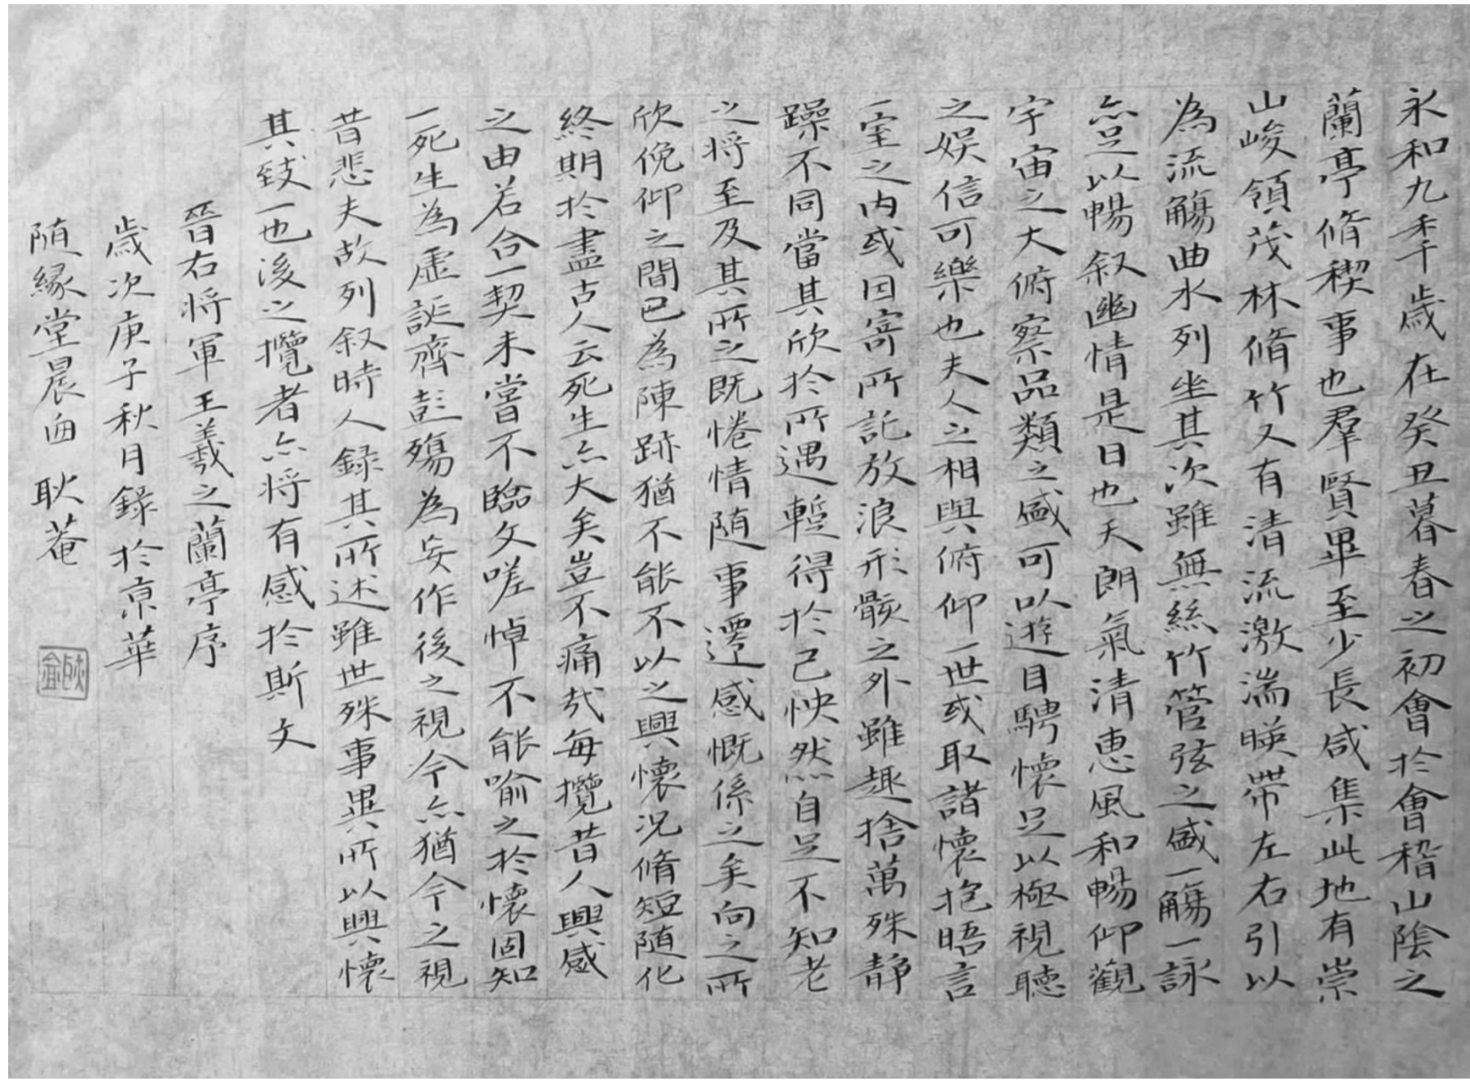 永和九秊歳在癸丑暮春之初會於會稽山陰之
蘭亭脩稧事也羣賢畢至少長咸集此地有崇
山峻領茂林脩竹又有清流激湍暎帶左右引以
為流觴曲水列坐其次雖無絲竹管弦之盛一觴一詠
亦足以暢叙幽情是日也天朗氣清惠風和暢仰觀
宇宙之大俯察品類之盛可以遊目騁懷足以極視聽
之娱信可樂也夫人之相與俯仰一世或取諸懷抱晤言
一室之内或因寄所託放浪形骸之外雖趣捨萬殊静
躁不同當其欣於所遇蹔得於己怏然自足不知老
之将至及其所之既惓情随事遷感慨係之矣向之所
欣俛仰之間已為陳跡猶不能不以之興懷況脩短随化
終期於盡古人云死生亦大矣豈不痛哉每攬昔人興感
之由若合一契未甞不臨文嗟悼不能喻之於懷固知
一死生為虚誕齊彭殤為妄作後之視今亦猶今之視
昔悲夫故列叙時人録其所述雖世殊事異所以興懷
其致一也後之攬者亦将有感於斯文
晉右将軍王羲之蘭亭序
歳次庚子秋月録於京華
随緣堂晨西 耿菴